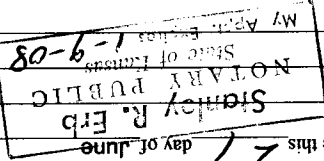 this day of June
Stanley R. Erb
NOTARY PUBLIC
State of Kansas
My Appt. Expires 1-9-08